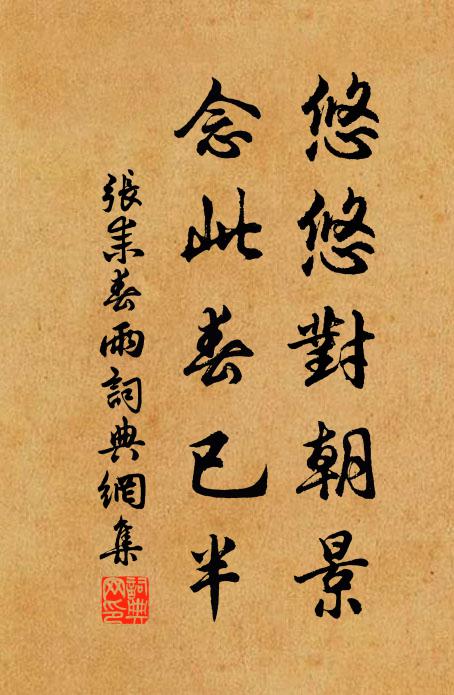 悠悠對朝景
念此春已半
張耒春雨詞典網集
詞典網印